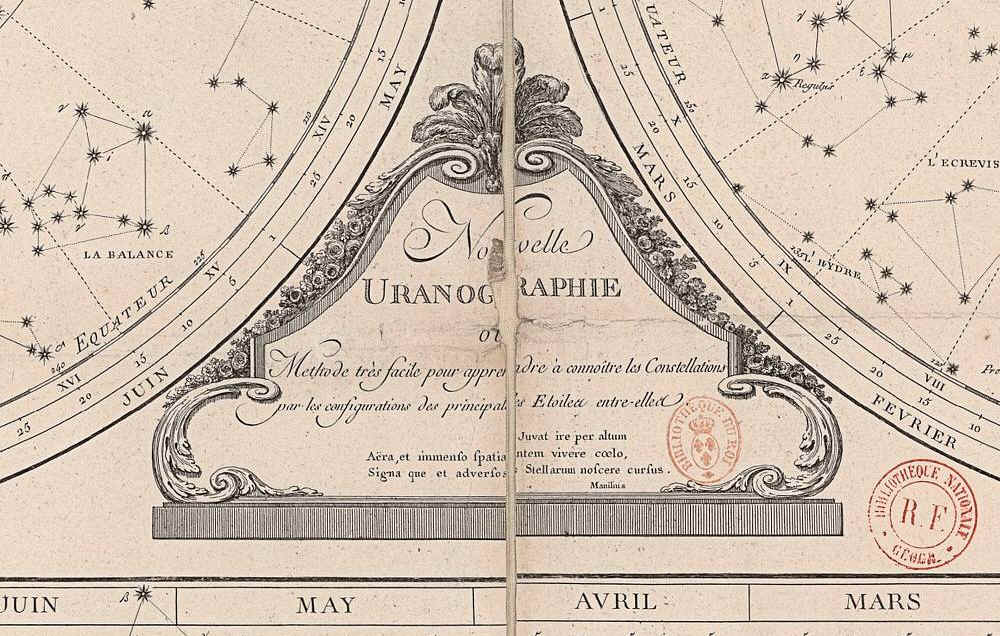 Nouvelle
URANOGRAPHIE
ou
Methode très facile pour apprendre à connoître les Constellations
par les configurations des principales Etoiles entre-elles
Juvat ire per altum
Aëra, et immenso spatiantem vivere cœlo,
Signa que et adversos Stellarum noscere cursus.
Manilius
BIBLIOTHEQUE DU ROI
BIBLIOTHEQUE NATIONALE
R.F.
GÉOGR.
LA BALANCE
EQUATEUR
225
240
XIV
XV
XVI
15
MAY
20
25
1
5
10
15
JUIN
20
25
UATEUR
Regulus
L'ECREVIS
L'HYDRE
135
120
X
IX
VIII
1
25
20
15
MARS
10
5
1
25
20
15
FEVRIER
10
JUIN
MAY
AVRIL
MARS